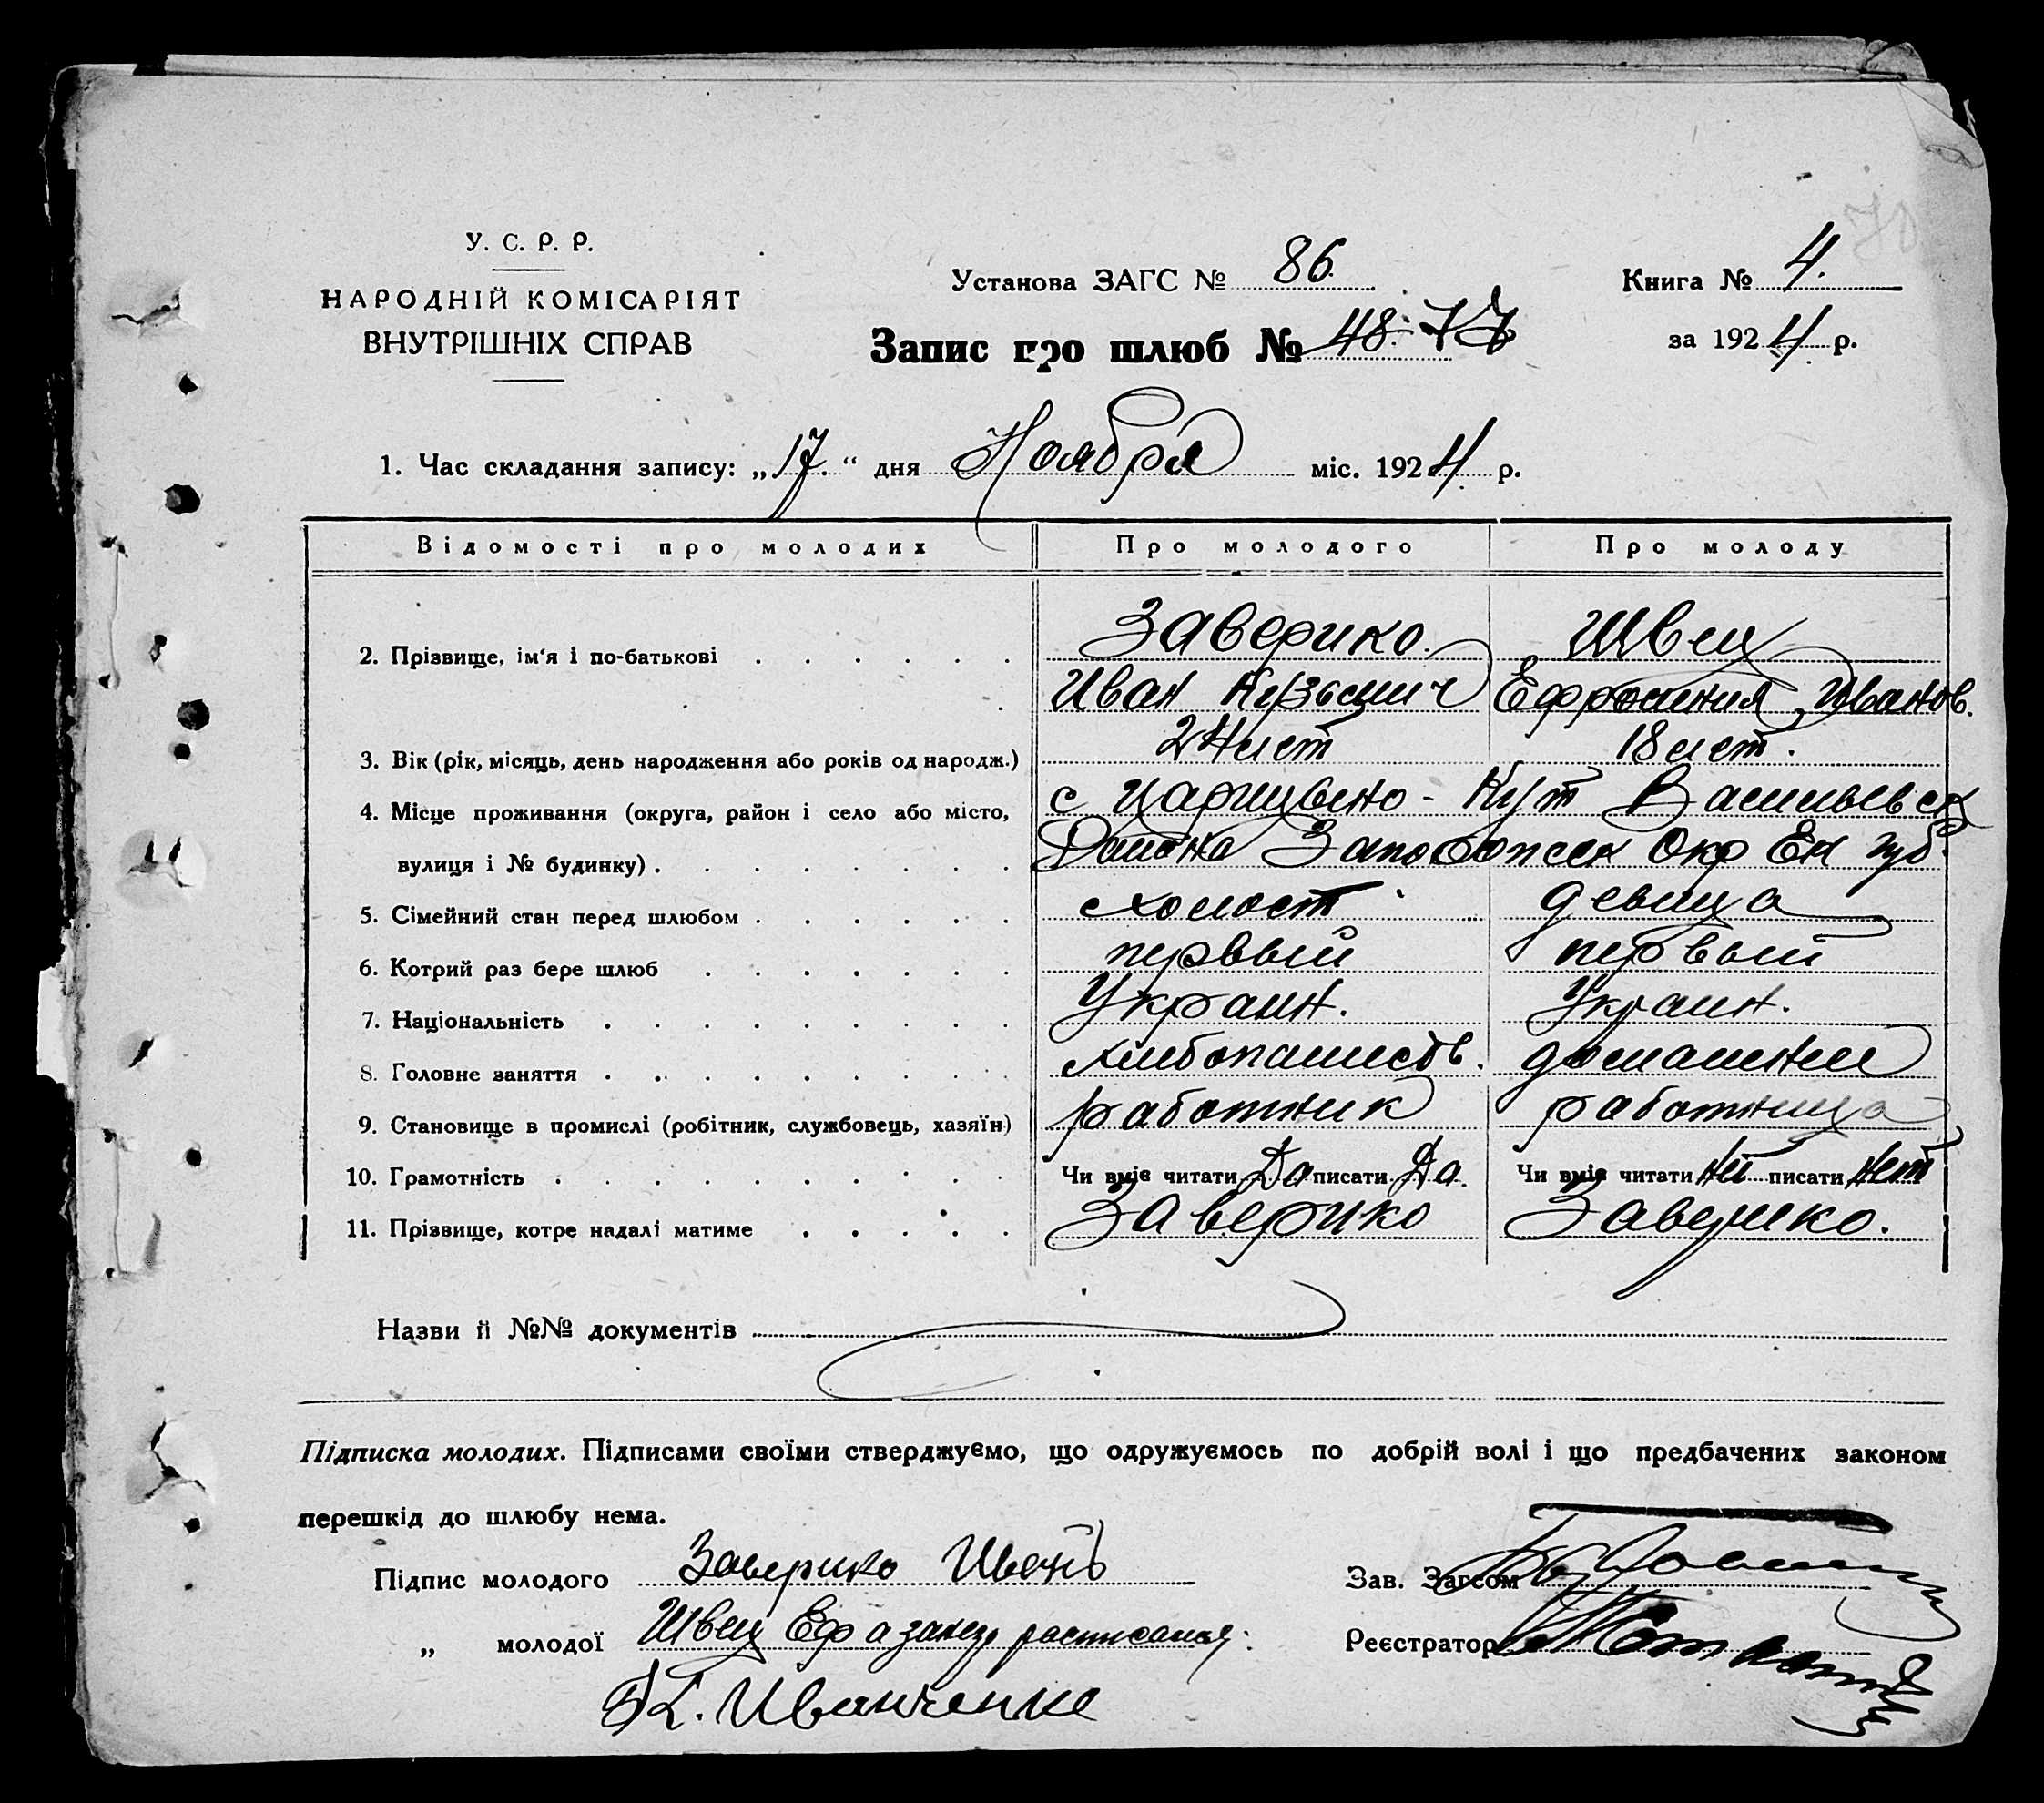 У. С. Р. Р.
НАРОДНІЙ КОМІСАРІЯТ
ВНУТРІШНІХ СПРАВ
Установа ЗАГС № 86.
Книга № 4.
Запис про шлюб № 48.
за 1924 р.
1. Час складання запису: „17.“ дня Ноября міс. 1924 р.
Відомості про молодих Про молодого Про молоду
2. Прізвище, ім'я і по-батькові Заверико. Швец
Иван Кузьмич Ефросиния Иванов.
3. Вік (рік, місяць, день народження або років од народж.) 24 лет 18 лет.
4. Місце проживання (округа, район і село або місто, с Царицыно-Кут Васильевск
вулиця і № будинку) Района Запорожск Окр Ек губ.
5. Сімейний стан перед шлюбом холост девица
6. Котрий раз бере шлюб первый первый
7. Національність Украин. Украин.
8. Головне заняття хлебопашеств. домашней
9. Становище в промислі (робітник, службовець, хазяїн) работник работница
10. Грамотність Чи вміє читати Да писати Да. Чи вміє читати нет писати нет
11. Прізвище, котре надалі матиме Заверико Заверико.
Назви й №№ документів
Підписка молодих. Підписами своїми стверджуємо, що одружуємось по добрій волі і що предбачених законом
перешкід до шлюбу нема.
Підпис молодого Заверико Ивань
Зав. Загсом
„ молодої Швец Еф а за
Реєстратор
Иванченко